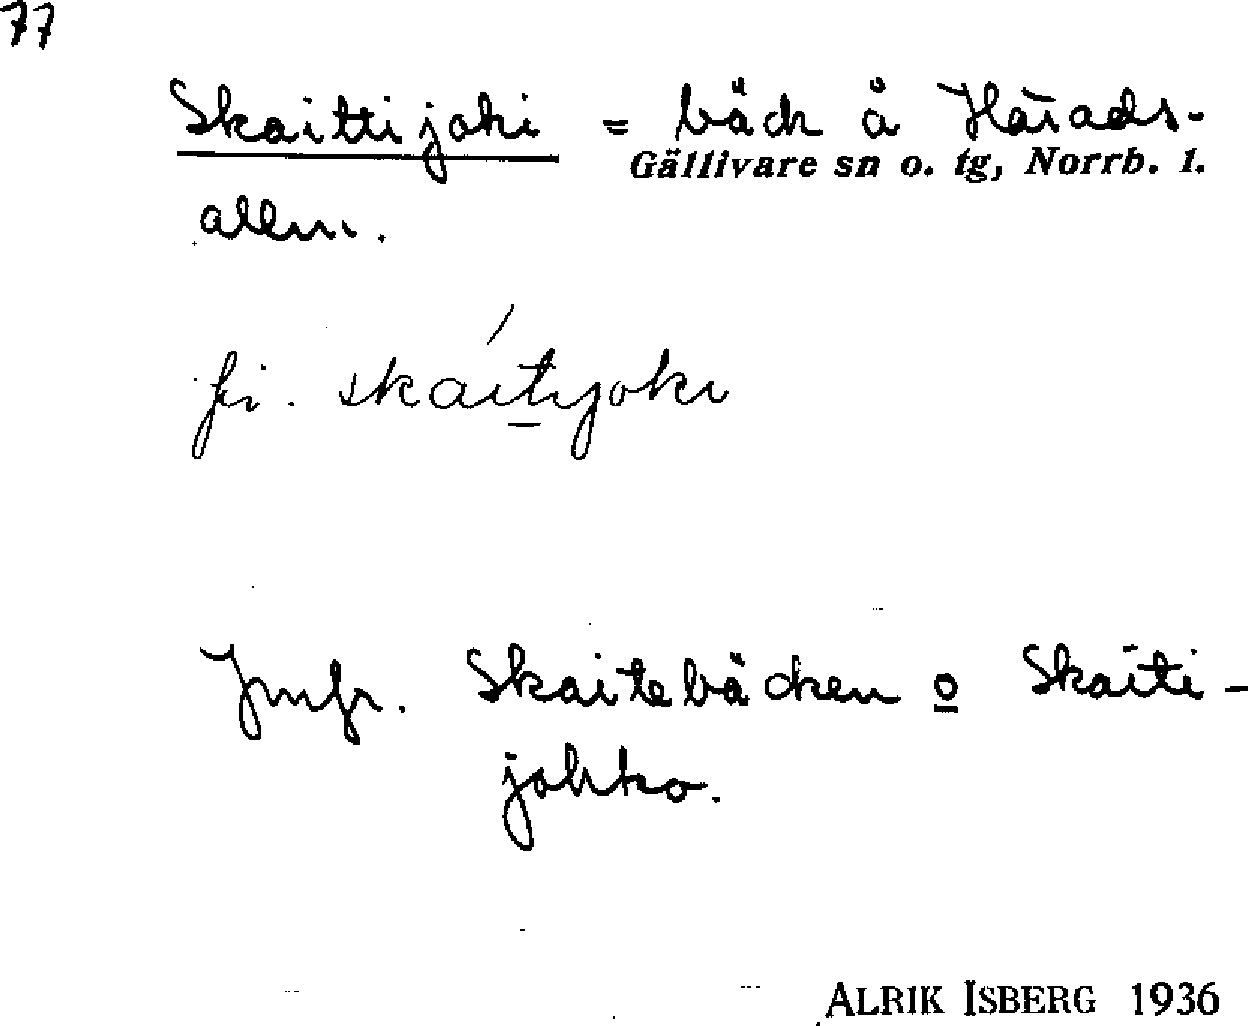 77
Skaittijoki = bäck å Härads-
Gällivare sn o. tg, Norrb. l.
allm.
fi. skáitijoki
Jmfr. Skaitebäcken o Skaiti-
johko.
ALRIK ISBERG 1936